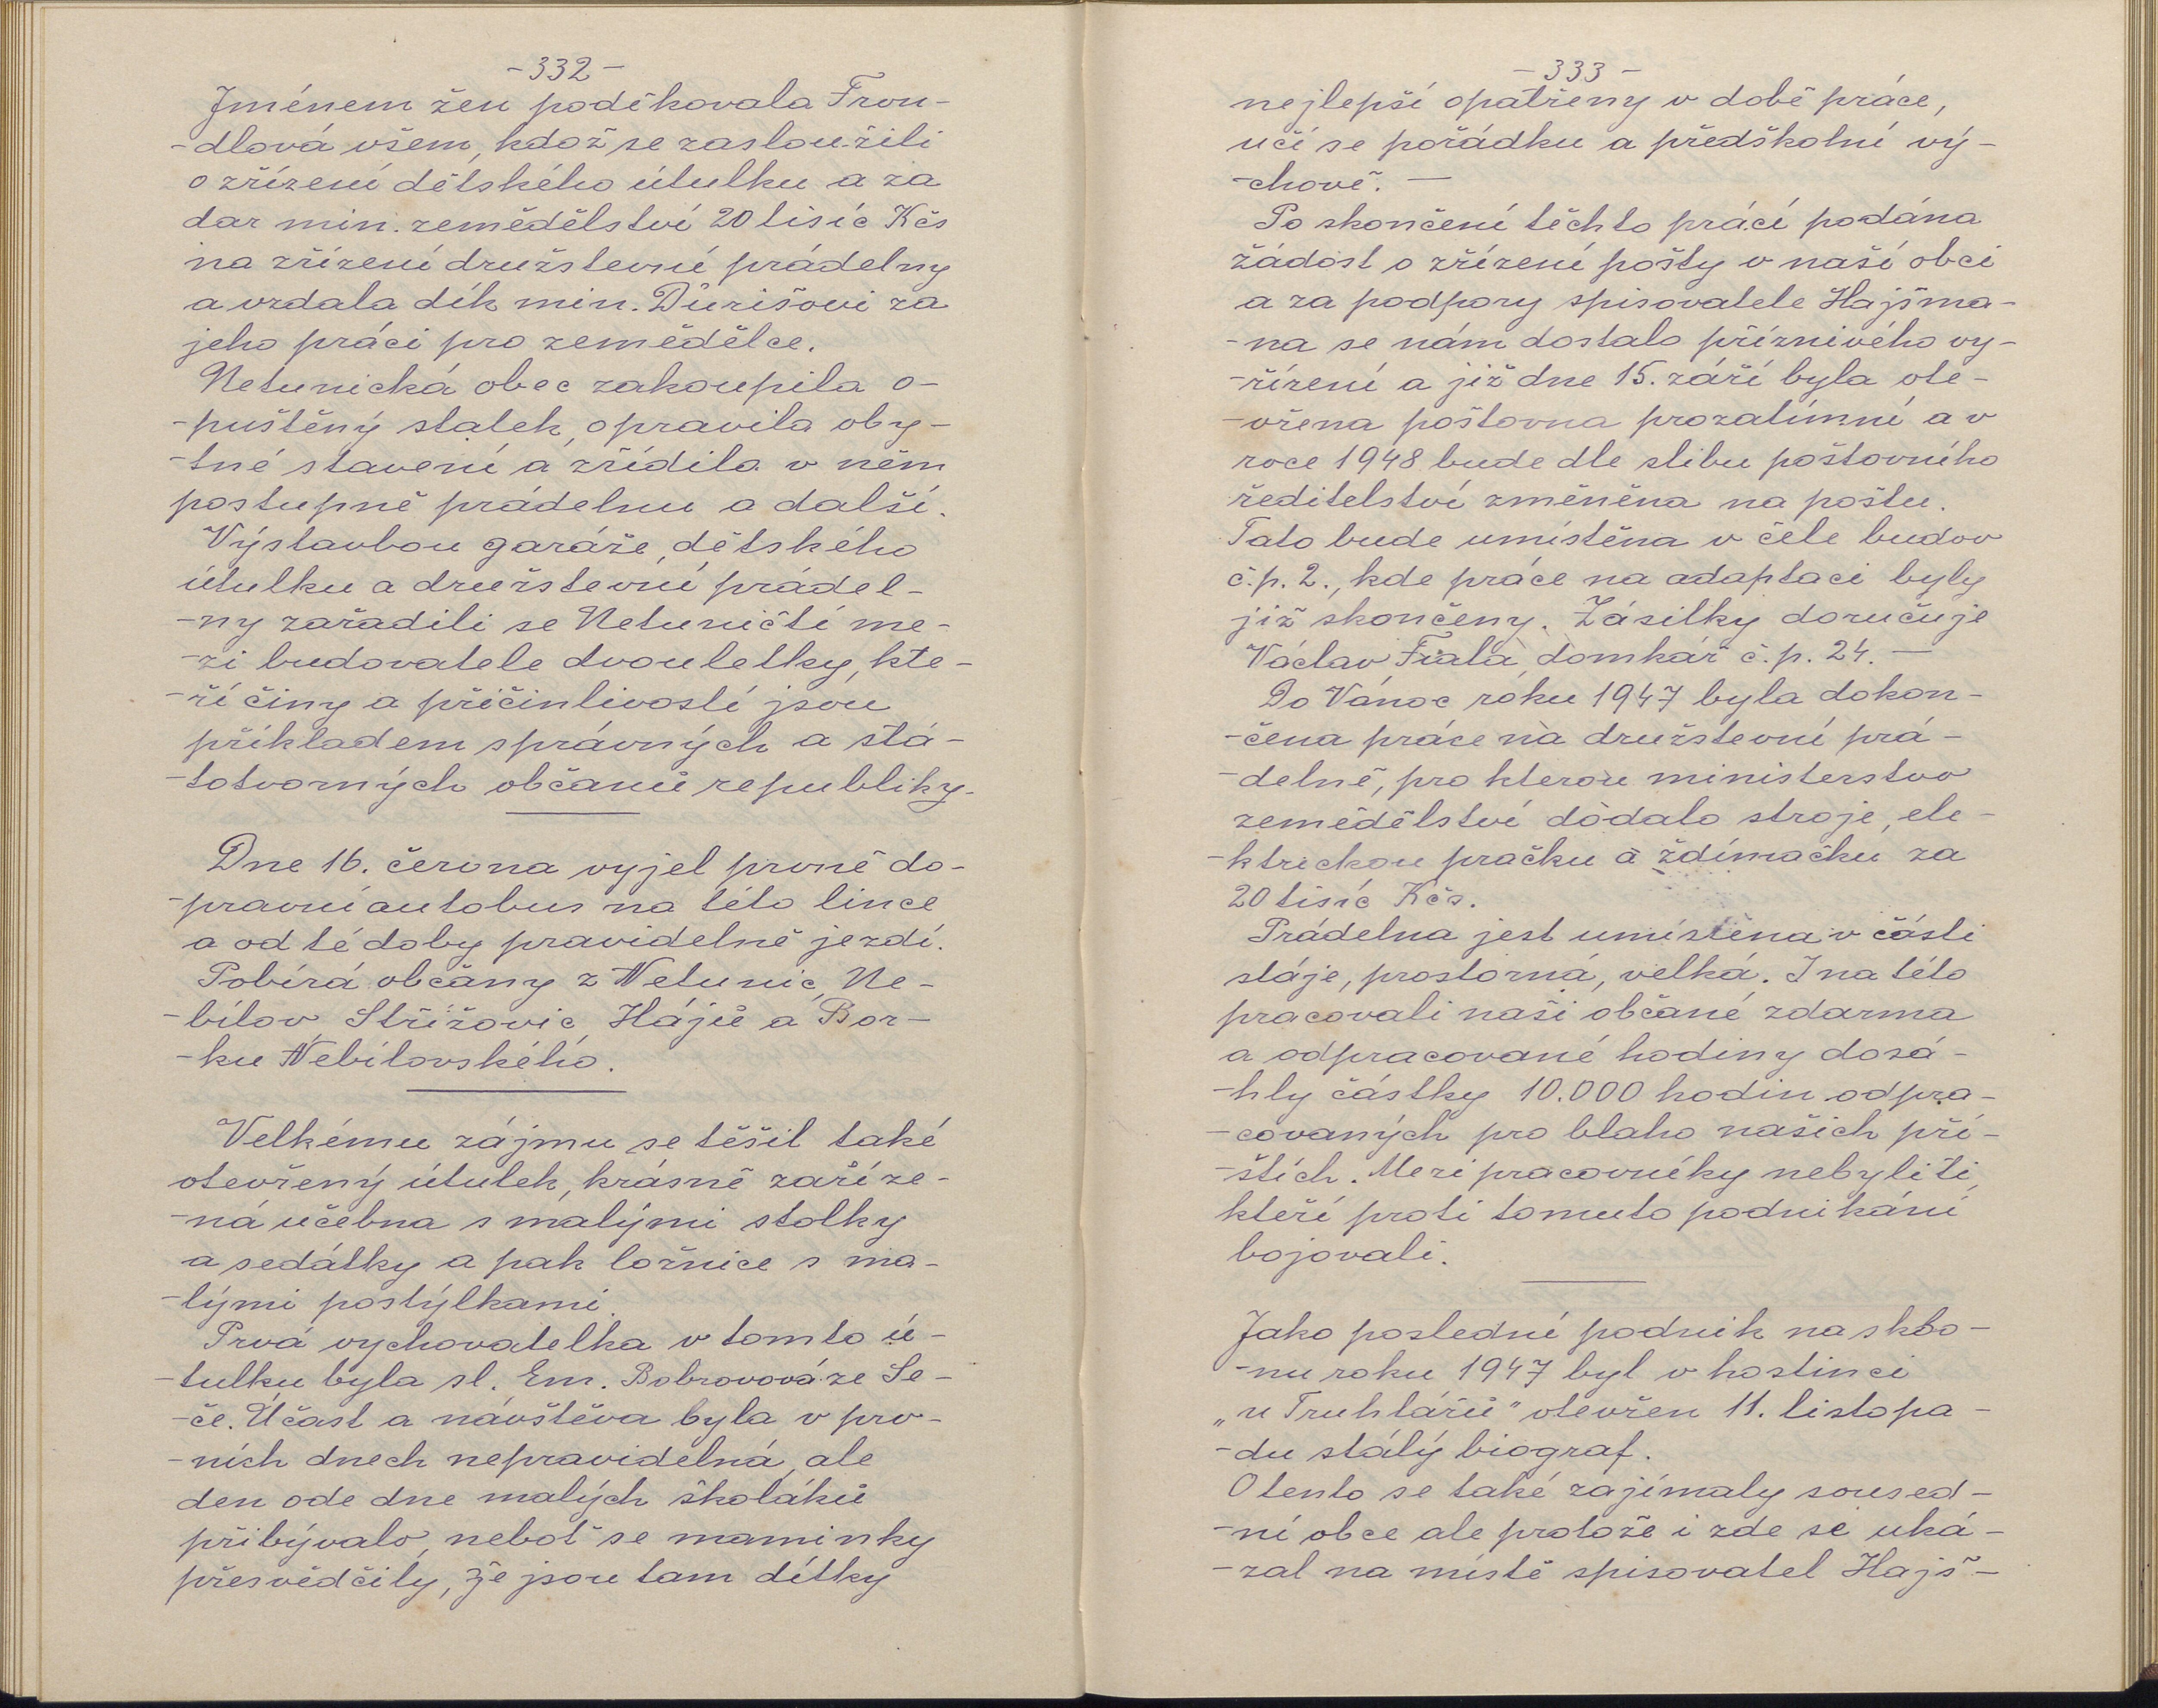 -332-
Jménem žen poděkovala Frou-
-dlová všem, kdož se zasloužili
o zřízení dětského útulku a za
dar min. zemědělství 20 tisíc Kčs
na zřízení družstevní prádelny
a vzdala dík min. Ďurišovi za
jeho práci pro zemědělce.
Netunická obec zakoupila o-
-puštěný statek, opravila oby-
-tné stavení a zřídila v něm
postupně prádelnu a další.
Výstavbou garáže, dětského
útulku a družstevní prádel-
-ny zařadili se Netuničtí me-
-zi budovatele dvouletky, kte-
-ří činy a přičinlivostí jsou
příkladem správných a stá-
-totvorných občanů republiky.
Dne 16. června vyjel prvně do-
-pravní autobus na této lince
a od té doby pravidelně jezdí.
Pobírá občany z Netunic, Ne-
-bílov, Střížovic, Hájů a Bor-
-ku Nebílovského.
Velkému zájmu se těšil také
otevřený útulek, krásně zaříze-
-ná učebna s malými stolky
a sedátky a pak ložnice s ma-
-lými postýlkami.
Prvá vychovatelka v tomto ú-
-tulku byla sl. Em. Bobrovová ze Se-
-če. Účast a návštěva byla v prv-
-ních dnech nepravidelná, ale
den ode dne malých školáků
přibývalo, neboť se maminky
přesvědčily, že jsou tam dítky
-333-
nejlepší opatřeny v době práce,
učí se pořádku a předškolní vý-
-chově. —
Po skončení těchto prácí podána
žádost o zřízení pošty v naší obci
a za podpory spisovatele Hajšma-
-na se nám dostalo příznivého vy-
-řízení a již dne 15. září byla ote-
-vřena poštovna prozatímní a v
roce 1948 bude dle slibu poštovního
ředitelství změněna na poštu.
Tato bude umístěna v čele budov
č.p. 2., kde práce na adaptaci byly
již skončeny. Zásilky doručuje
Václav Fiala domkář č.p. 24. —
Do Vánoc roku 1947 byla dokon-
-čena práce na družstevní prá-
-delně, pro kterou ministerstvo
zemědělství dodalo stroje, ele-
-ktrickou pračku a ždímačku za
20 tisíc Kčs.
Prádelna jest umístěna v části
stáje, prostorná, velká. I na této
pracovali naši občané zdarma
a odpracované hodiny dosá-
-hly částky 10.000 hodin odpra-
-covaných pro blaho našich pří-
-štích. Mezi pracovníky nebyli ti,
kteří proti tomuto podnikání
bojovali.
Jako poslední podnik na sklo-
-nu roku 1947 byl v hostinci
„u Truhlářů" otevřen 11. listopa-
-du stálý biograf.
O tento se také zajímaly soused-
-ní obce ale protože i zde se uká-
-zal na místě spisovatel Hajš-